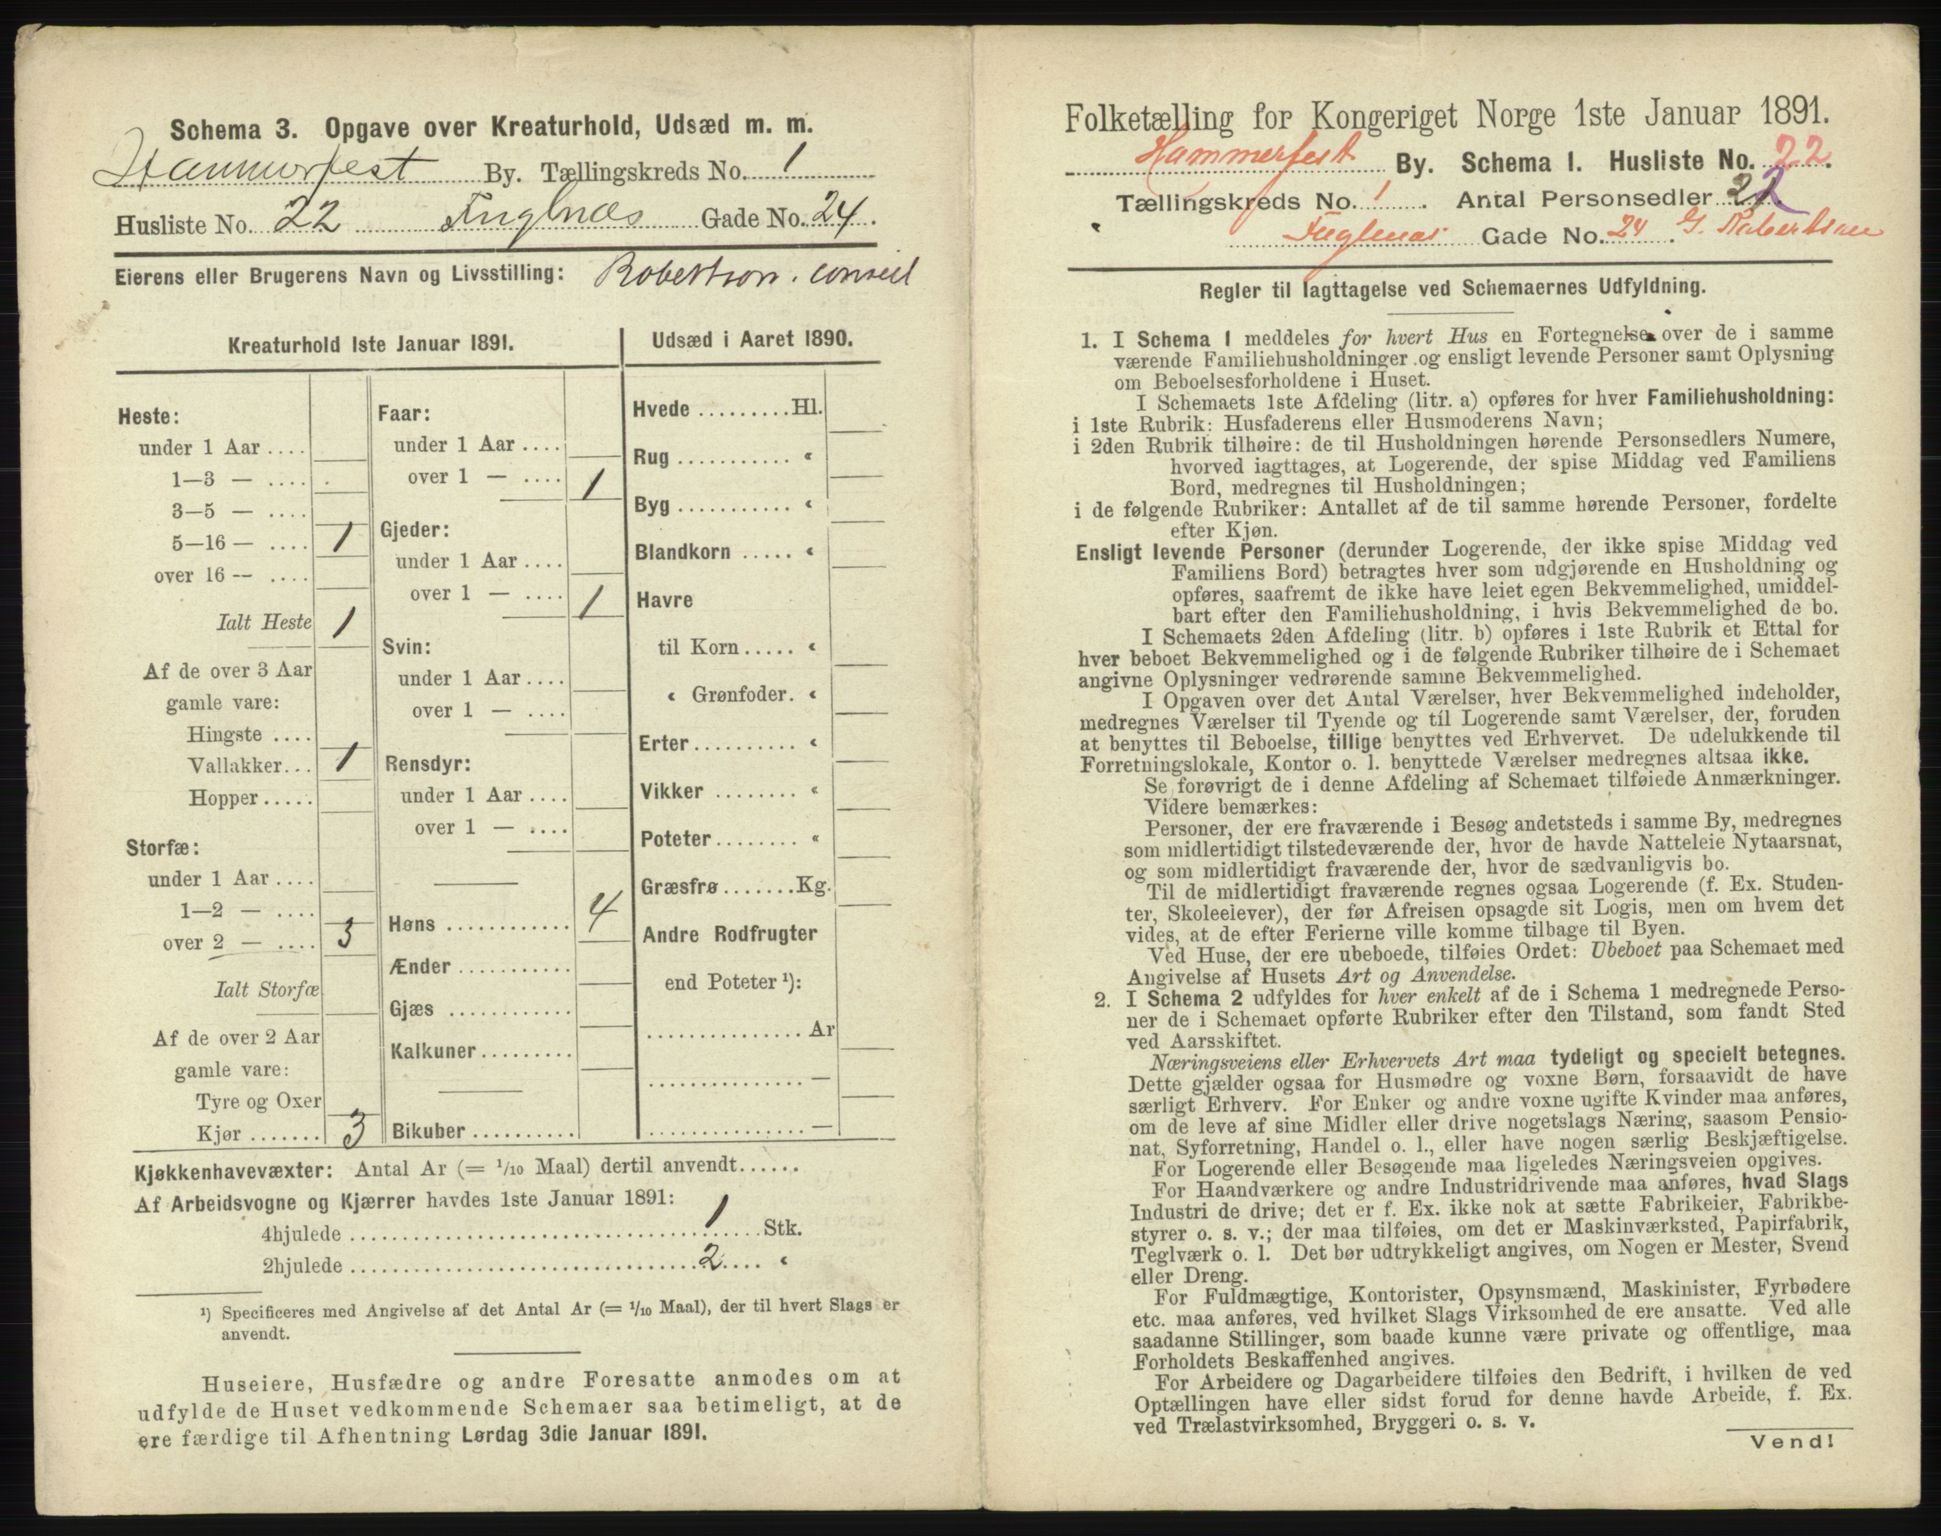 Schema 3. Opgave over Kreaturhold, Udsæd m. m.
Hammerfest By. Tællingskreds No. 1
Husliste No. 22 Fuglnæs Gade No. 24.
Eierens eller Brugerens Navn og Livsstilling: Robertson. consul
Kreaturhold 1ste Januar 1891.
Heste:
under 1 Aar ....
1—3 — ....
3—5 — ....
5—16 — .... 1
over 16 — ....
Ialt Heste 1
Af de over 3 Aar
gamle vare:
Hingste ....
Vallakker... 1
Hopper .....
Storfæ:
under 1 Aar ....
1—2 — ....
over 2 — .... 3
Ialt Storfæ
Af de over 2 Aar
gamle vare:
Tyre og Oxer
Kjør ....... 3
Faar:
under 1 Aar ....
over 1 — .... 1
Gjeder:
under 1 Aar ....
over 1 — .... 1
Svin:
under 1 Aar ....
over 1 — ....
Rensdyr:
under 1 Aar ....
over 1 — ....
Høns ............ 4
Ænder ...........
Gjæs ............
Kalkuner.........
Bikuber ..........
Udsæd i Aaret 1890.
Hvede .........Hl.
Rug ........... „
Byg ........... „
Blandkorn ..... „
Havre
til Korn ..... „
„ Grønfoder. „
Erter .......... „
Vikker ........ „
Poteter ........ „
Græsfrø .......Kg.
Andre Rodfrugter
end Poteter ¹):
............... Ar
............... —
............... —
Kjøkkenhavevæxter: Antal Ar (= 1/10 Maal) dertil anvendt......
Af Arbeidsvogne og Kjærrer havdes 1ste Januar 1891:
4hjulede .......... 1 Stk.
2hjulede .......... 2 „
¹) Specificeres med Angivelse af det Antal Ar (= 1/10 Maal), der til hvert Slags er
anvendt.
Huseiere, Husfædre og andre Foresatte anmodes om at
udfylde de Huset vedkommende Schemaer saa betimeligt, at de
ere færdige til Afhentning Lørdag 3die Januar 1891.
Folketælling for Kongeriget Norge 1ste Januar 1891.
Hammerfest By. Schema 1. Husliste No. 22.
Tællingskreds No. 1. Antal Personsedler
Fuglenæs Gade No. 24. G. Robertson
Regler til Iagttagelse ved Schemaernes Udfyldning.
1. I Schema 1 meddeles for hvert Hus en Fortegnelse over de i samme
værende Familiehusholdninger og ensligt levende Personer samt Oplysning
om Beboelsesforholdene i Huset.
I Schemaets 1ste Afdeling (litr. a) opføres for hver Familiehusholdning:
i 1ste Rubrik: Husfaderens eller Husmoderens Navn;
i 2den Rubrik tilhøire: de til Husholdningen hørende Personsedlers Numere,
hvorved iagttages, at Logerende, der spise Middag ved Familiens
Bord, medregnes til Husholdningen;
i de følgende Rubriker: Antallet af de til samme hørende Personer, fordelte
efter Kjøn.
Ensligt levende Personer (derunder Logerende, der ikke spise Middag ved
Familiens Bord) betragtes hver som udgjørende en Husholdning og
opføres, saafremt de ikke have leiet egen Bekvemmelighed, umiddel-
bart efter den Familiehusholdning, i hvis Bekvemmelighed de bo.
I Schemaets 2den Afdeling (litr. b) opføres i 1ste Rubrik et Ettal for
hver beboet Bekvemmelighed og i de følgende Rubriker tilhøire de i Schemaet
angivne Oplysninger vedrørende samme Bekvemmelighed.
I Opgaven over det Antal Værelser, hver Bekvemmelighed indeholder,
medregnes Værelser til Tyende og til Logerende samt Værelser, der, foruden
at benyttes til Beboelse, tillige benyttes ved Erhvervet. De udelukkende til
Forretningslokale, Kontor o. l. benyttede Værelser medregnes altsaa ikke.
Se forøvrigt de i denne Afdeling af Schemaet tilføiede Anmærkninger.
Videre bemærkes:
Personer, der ere fraværende i Besøg andetsteds i samme By, medregnes
som midlertidigt tilstedeværende der, hvor de havde Natteleie Nytaarsnat,
og som midlertidigt fraværende der, hvor de sædvanligvis bo.
Til de midlertidigt fraværende regnes ogsaa Logerende (f. Ex. Studen-
ter, Skoleelever), der før Afreisen opsagde sit Logis, men om hvem det
vides, at de efter Ferierne ville komme tilbage til Byen.
Ved Huse, der ere ubeboede, tilføies Ordet: Ubeboet paa Schemaet med
Angivelse af Husets Art og Anvendelse.
2. I Schema 2 udfyldes for hver enkelt af de i Schema 1 medregnede Perso-
ner de i Schemaet opførte Rubriker efter den Tilstand, som fandt Sted
ved Aarsskiftet.
Næringsveiens eller Erhvervets Art maa tydeligt og specielt betegnes.
Dette gjælder ogsaa for Husmødre og voxne Børn, forsaavidt de have
særligt Erhverv. For Enker og andre voxne ugifte Kvinder maa anføres,
om de leve af sine Midler eller drive nogetslags Næring, saasom Pensio-
nat, Syforretning, Handel o. l., eller have nogen særlig Beskjæftigelse.
For Logerende eller Besøgende maa ligeledes Næringsveien opgives.
For Haandværkere og andre Industridrivende maa anføres, hvad Slags
Industri de drive; det er f. Ex. ikke nok at sætte Fabrikeier, Fabrikbe-
styrer o. s. v.; der maa tilføies, om det er Maskinværksted, Papirfabrik,
Teglværk o. l. Det bør udtrykkeligt angives, om Nogen er Mester, Svend
eller Dreng.
For Fuldmægtige, Kontorister, Opsynsmænd, Maskinister, Fyrbødere
etc. maa anføres, ved hvilket Slags Virksomhed de ere ansatte. Ved alle
saadanne Stillinger, som baade kunne være private og offentlige, maa
Forholdets Beskaffenhed angives.
For Arbeidere og Dagarbeidere tilføies den Bedrift, i hvilken de ved
Optællingen have eller sidst forud for denne havde Arbeide, f. Ex.
ved Trælastvirksomhed, Bryggeri o. s. v.
Vend!